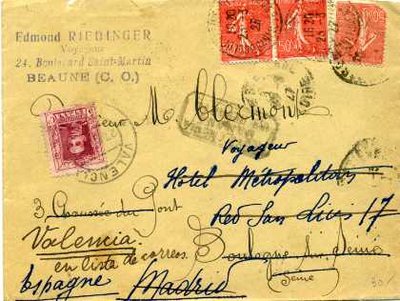 Edmond RIEDINGER
Voyageur
24, Boulevard Saint-Martin
BEAUNE (C. O.)
Monsieur M. Clermont
Voyageur
Hotel Métropolitain
3 Chaussée du Pont
Red San Luis 17
Valencia
Boulogne sur Seine
en lista de correos
Seine
Espagne
Madrid
VALENCIA